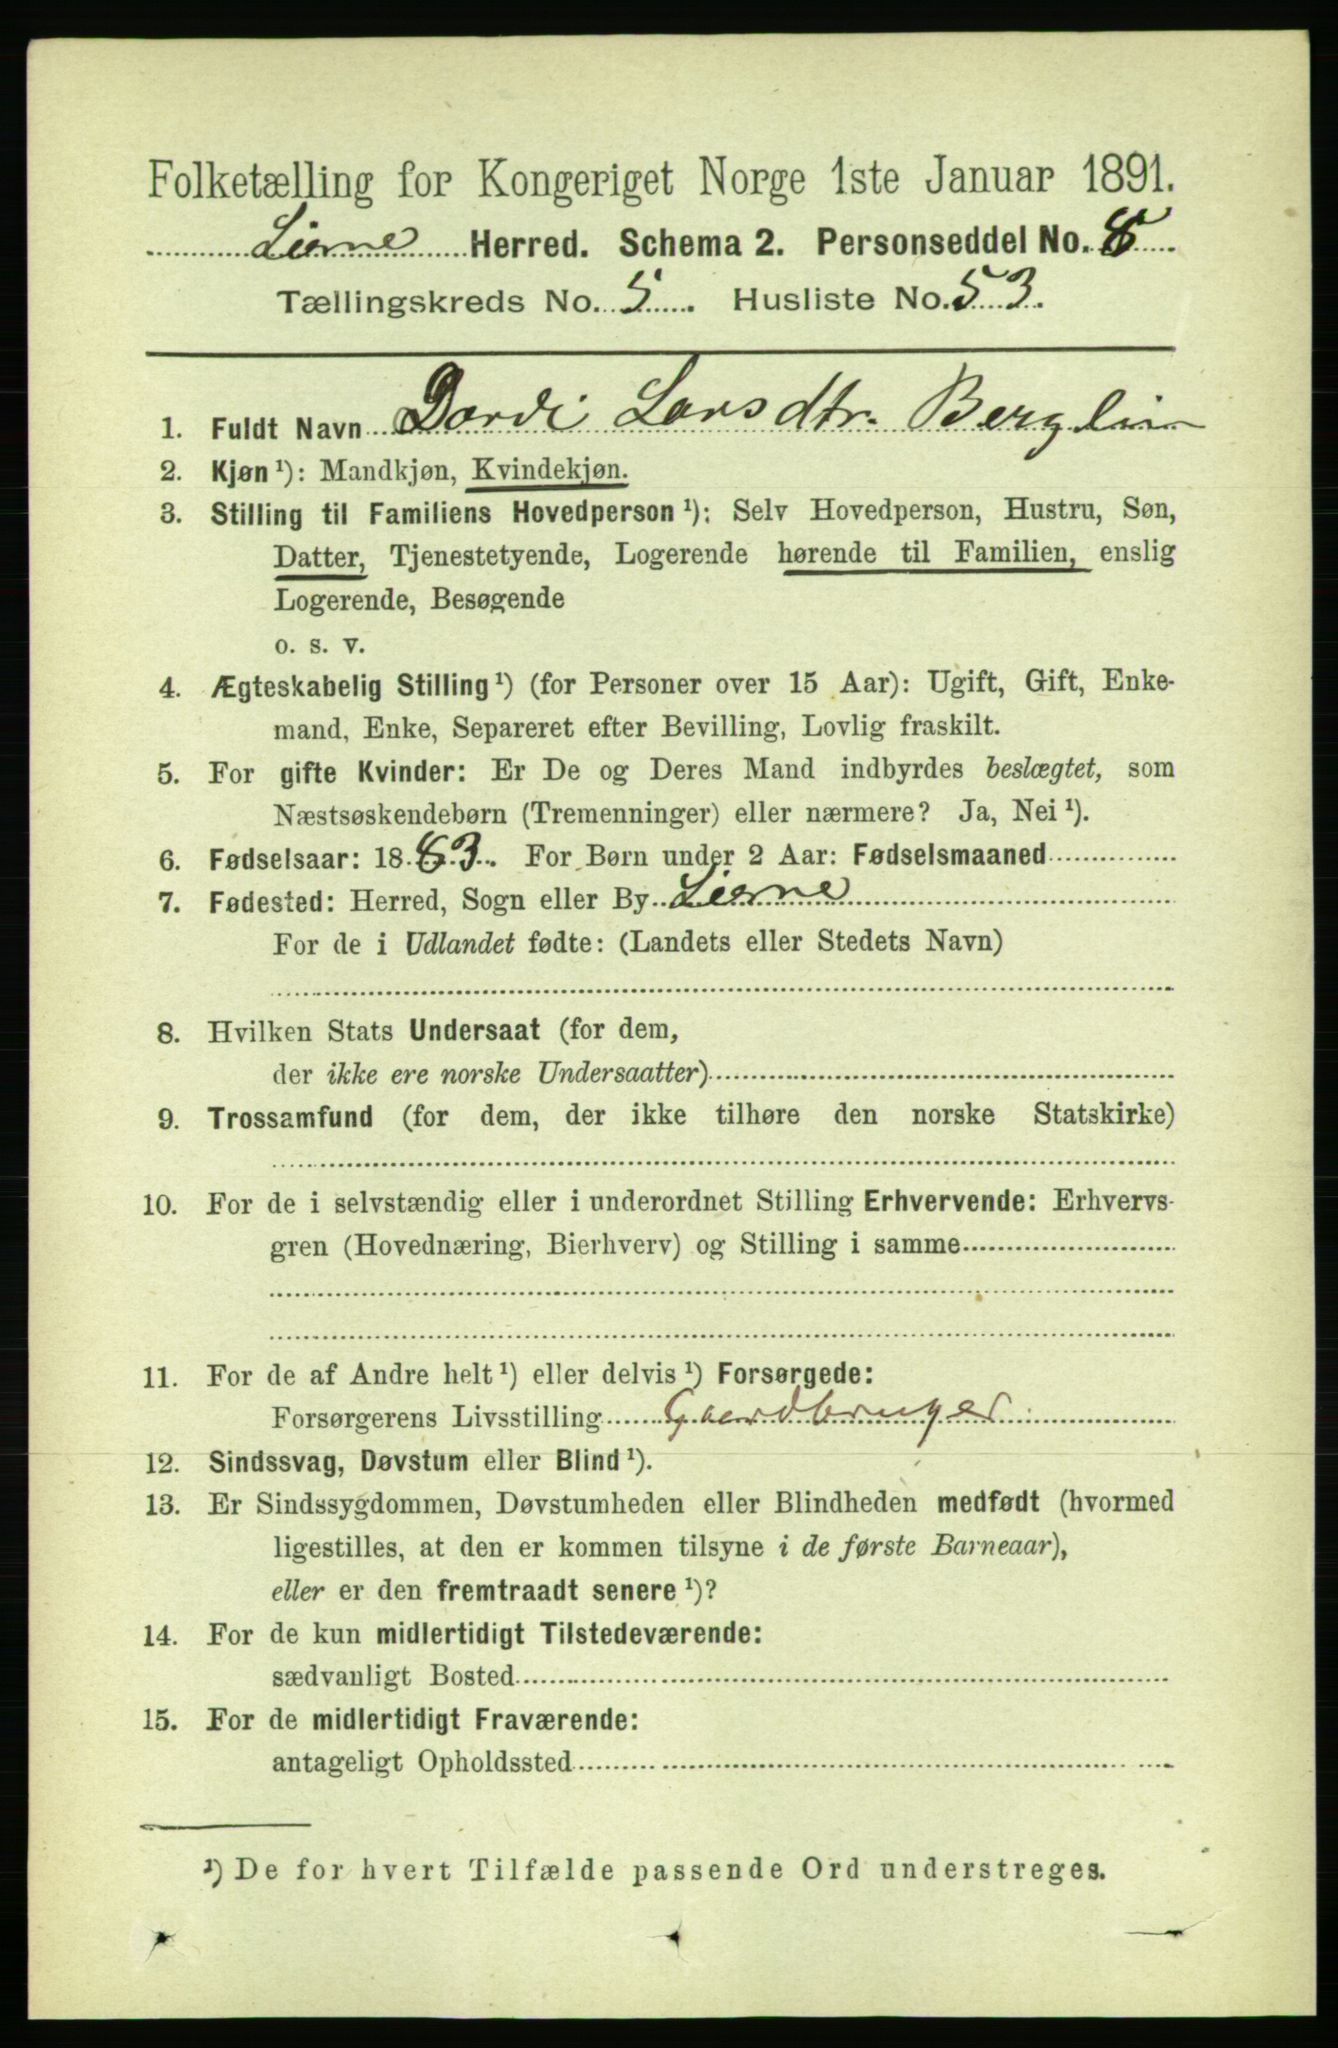 Folketælling for Kongeriget Norge 1ste Januar 1891.
Lierne Herred. Schema 2. Personseddel No. 8
Tællingskreds No. 5. Husliste No. 53.
1. Fuldt Navn Dordi Larsdtr. Berglin
2. Kjøn ¹): Mandkjøn, Kvindekjøn.
3. Stilling til Familiens Hovedperson ¹): Selv Hovedperson, Hustru, Søn,
Datter, Tjenestetyende, Logerende hørende til Familien, enslig
Logerende, Besøgende
o. s. v.
4. Ægteskabelig Stilling ¹) (for Personer over 15 Aar): Ugift, Gift, Enke-
mand, Enke, Separeret efter Bevilling, Lovlig fraskilt.
5. For gifte Kvinder: Er De og Deres Mand indbyrdes beslægtet, som
Næstsøskendebørn (Tremenninger) eller nærmere? Ja, Nei ¹).
6. Fødselsaar: 1883. For Børn under 2 Aar: Fødselsmaaned
7. Fødested: Herred, Sogn eller By Lierne
For de i Udlandet fødte: (Landets eller Stedets Navn)
8. Hvilken Stats Undersaat (for dem,
der ikke ere norske Undersaatter)
9. Trossamfund (for dem, der ikke tilhøre den norske Statskirke)
10. For de i selvstændig eller i underordnet Stilling Erhvervende: Erhvervs-
gren (Hovednæring, Bierhverv) og Stilling i samme
11. For de af Andre helt ¹) eller delvis ¹) Forsørgede:
Forsørgerens Livsstilling Gaardbruger
12. Sindssvag, Døvstum eller Blind ¹).
13. Er Sindssygdommen, Døvstumheden eller Blindheden medfødt (hvormed
ligestilles, at den er kommen tilsyne i de første Barneaar),
eller er den fremtraadt senere ¹)?
14. For de kun midlertidigt Tilstedeværende:
sædvanligt Bosted
15. For de midlertidigt Fraværende:
antageligt Opholdssted
¹) De for hvert Tilfælde passende Ord understreges.